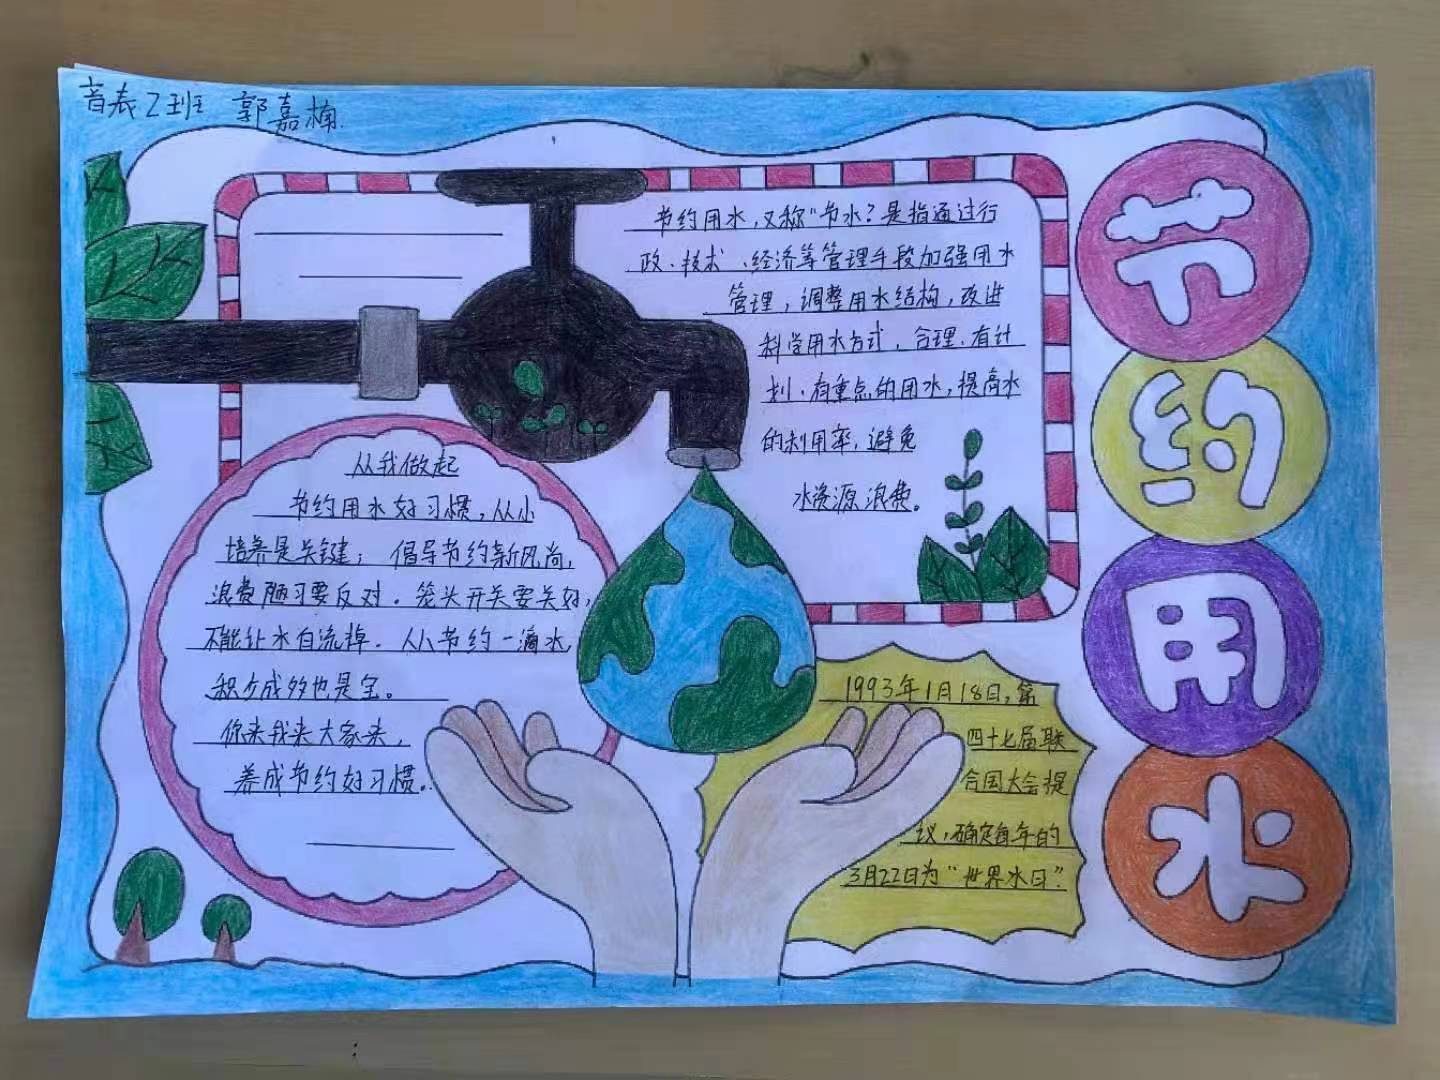 音表2班 郭嘉楠
节约用水
节约用水,又称"节水?是指通过行
政、技术、经济等管理手段加强用水
管理,调整用水结构,改进
科学用水方式,合理、有计
划、有重点的用水,提高水
的利用率,避免
水资源浪费。
从我做起
节约用水好习惯,从小
培养是关键;倡导节约新风尚,
浪费陋习要反对。笼头开关要关好,
不能让水白流掉。从小节约一滴水,
积少成多也是宝。
你来我来大家来,
养成节约好习惯。
1993年1月18日,第
四十七届联
合国大会提
议,确定每年的
3月22日为"世界水日".